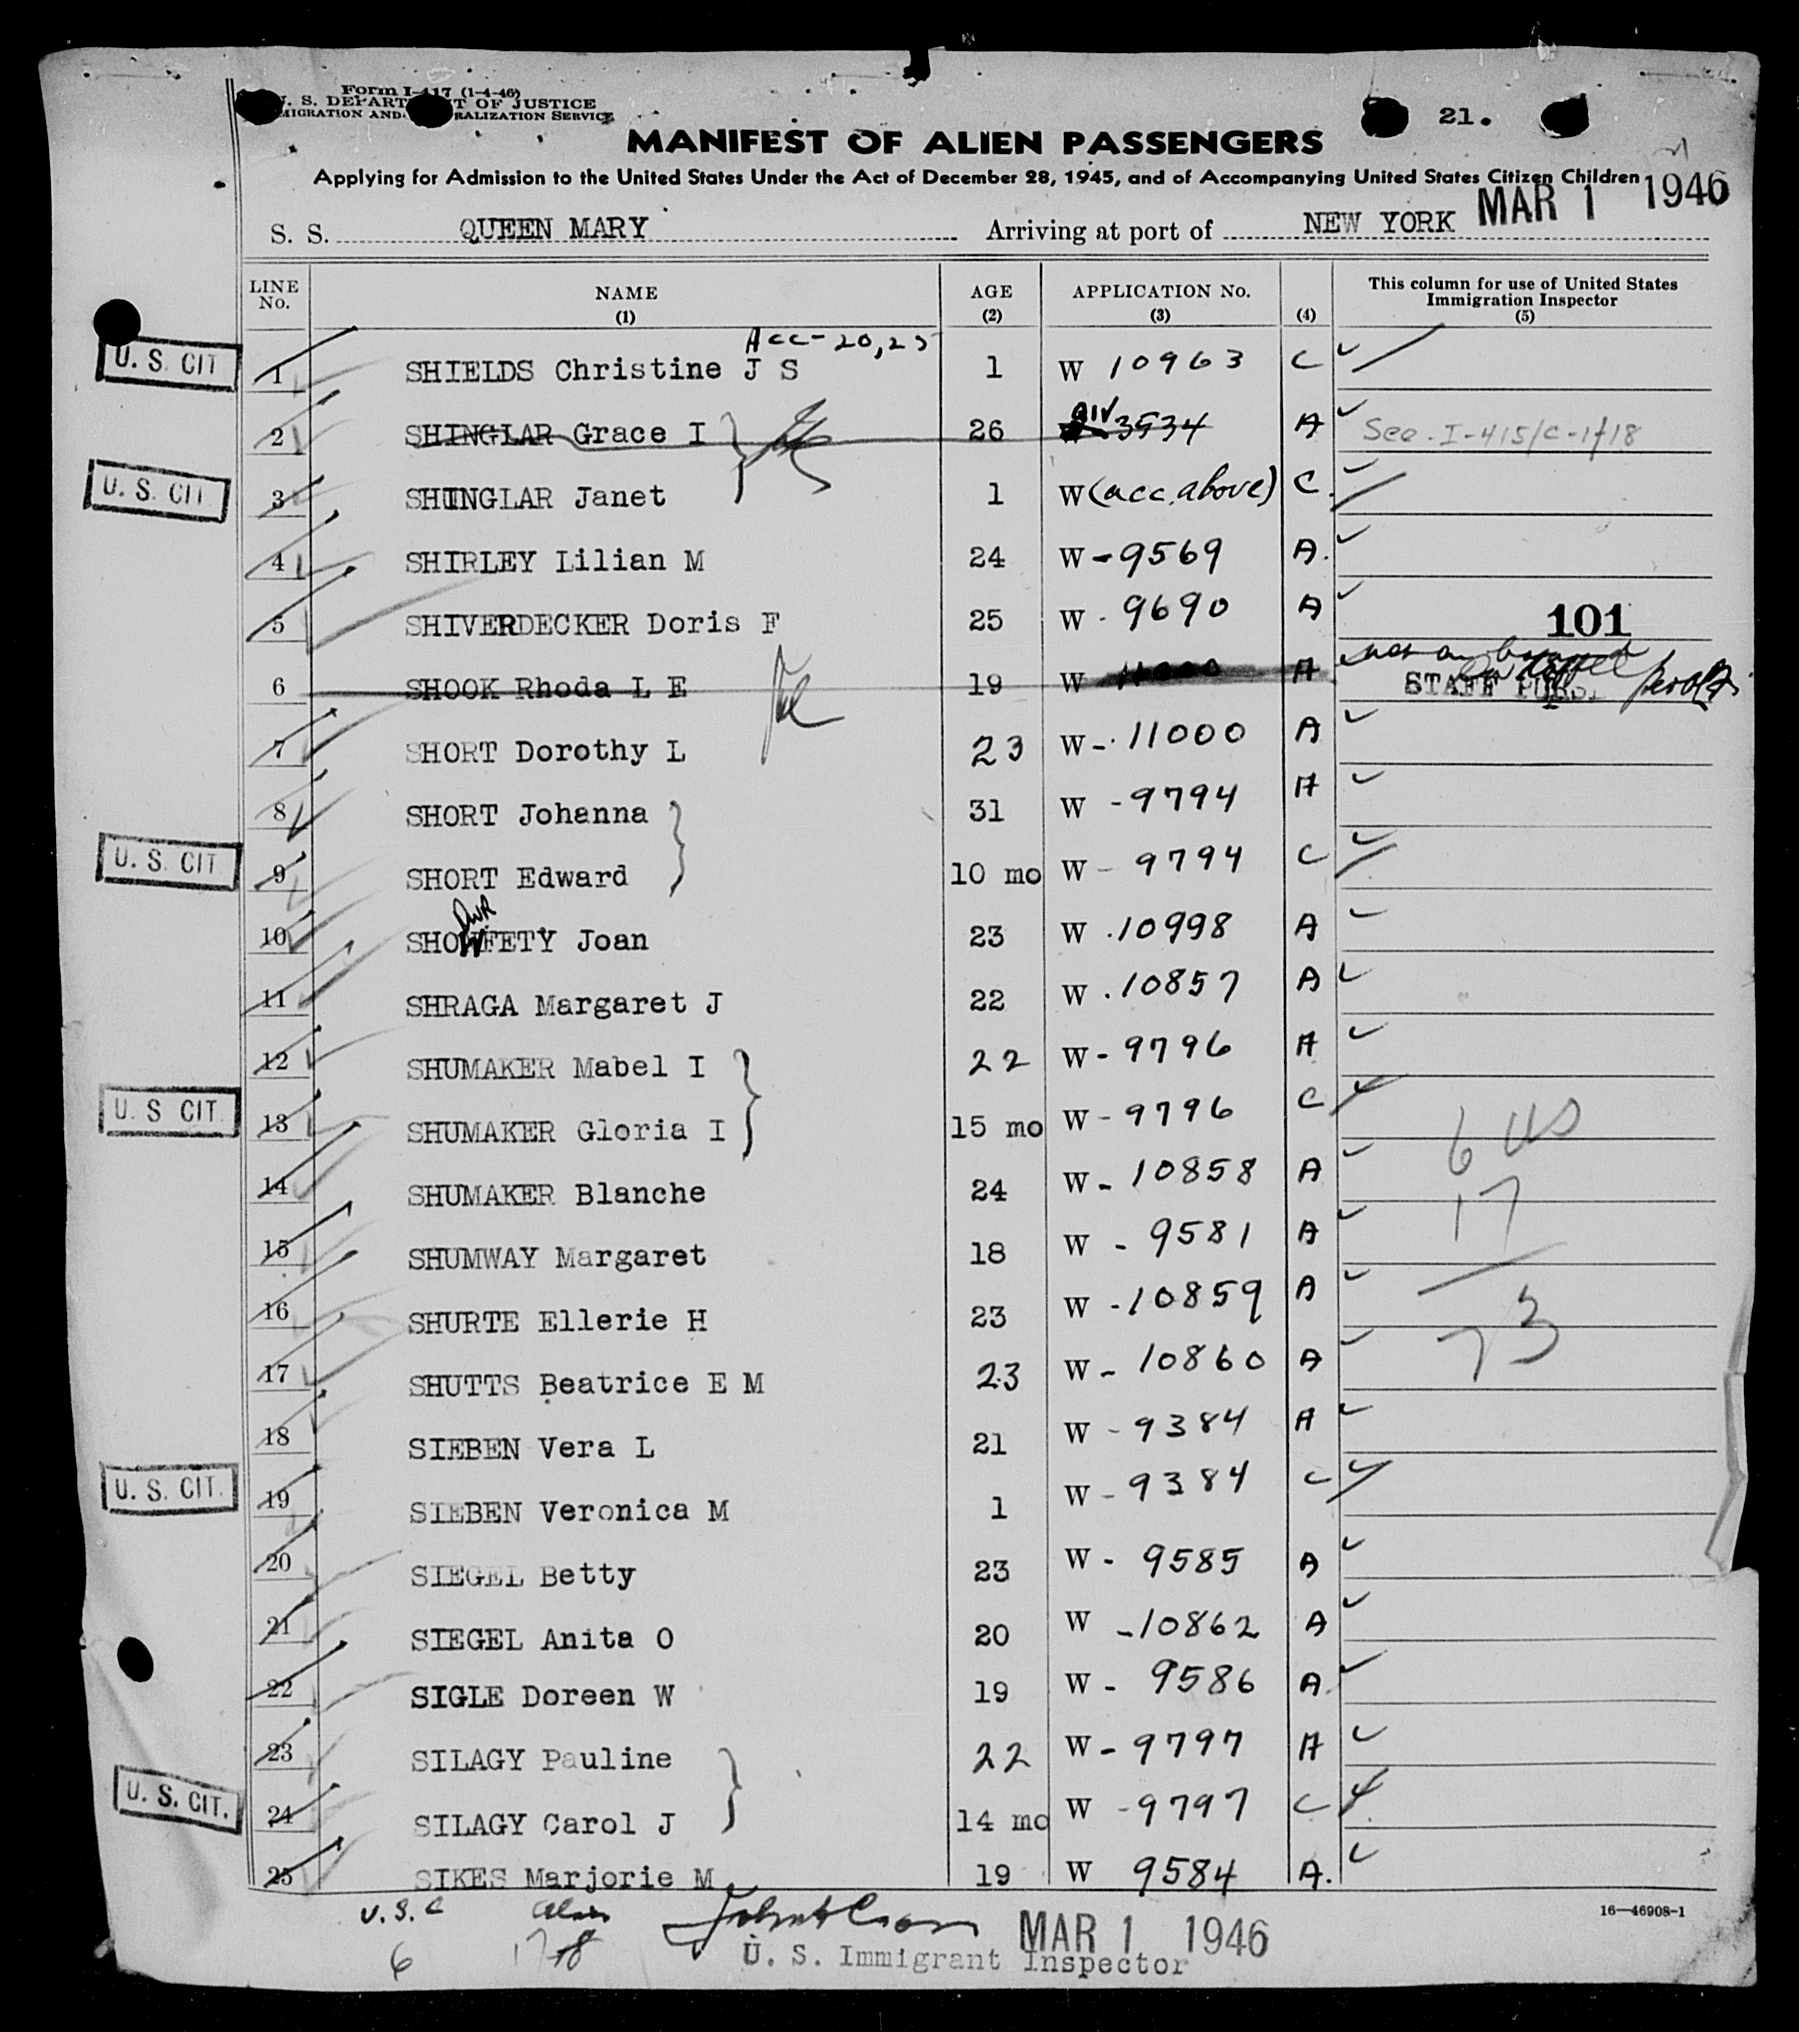 Form I-417 (1-4-46)
U. S. DEPARTMENT OF JUSTICE
IMMIGRATION AND NATURALIZATION SERVICE
21.
MANIFEST OF ALIEN PASSENGERS
Applying for Admission to the United States Under the Act of December 28, 1945, and of Accompanying United States Citizen Children
MAR 1 1946
S. S. QUEEN MARY Arriving at port of NEW YORK
LINE No. NAME (1) AGE (2) APPLICATION No. (3) (4) This column for use of United States Immigration Inspector (5)
Acc-20,25
U. S. CIT 1 SHIELDS Christine J S 1 W 10963 C
2 SHINGLAR Grace I 26 3534 A See. I-415/C-1/18
U. S. CIT 3 SHINGLAR Janet 1 W (acc. above) C.
4 SHIRLEY Lilian M 24 W - 9569 A.
5 SHIVERDECKER Doris F 25 W - 9690 A
101
6 SHOOK Rhoda L E 19 W 11000 A not on board
STAFF
7 SHORT Dorothy L 23 W - 11000 A
8 SHORT Johanna 31 W - 9794 A
U. S. CIT 9 SHORT Edward 10 mo W - 9794 C
10 SHOWFETY Joan 23 W . 10998 A
11 SHRAGA Margaret J 22 W . 10857 A
12 SHUMAKER Mabel I 22 W - 9796 A
U. S CIT. 13 SHUMAKER Gloria I 15 mo W - 9796 C
6 US
14 SHUMAKER Blanche 24 W - 10858 A
17
15 SHUMWAY Margaret 18 W - 9581 A
16 SHURTE Ellerie H 23 W - 10859 A
73
17 SHUTTS Beatrice E M 23 W - 10860 A
18 SIEBEN Vera L 21 W - 9384 A
U. S. CIT. 19 SIEBEN Veronica M 1 W - 9384 C
20 SIEGEL Betty 23 W - 9585 A
21 SIEGEL Anita O 20 W - 10862 A
22 SIGLE Doreen W 19 W - 9586 A
23 SILAGY Pauline 22 W - 9797 A
U. S. CIT. 24 SILAGY Carol J 14 mo W - 9797 C
25 SIKES Marjorie M 19 W 9584 A.
16—46908-1
U. S. C
6 17
MAR 1 1946
U. S. Immigrant Inspector